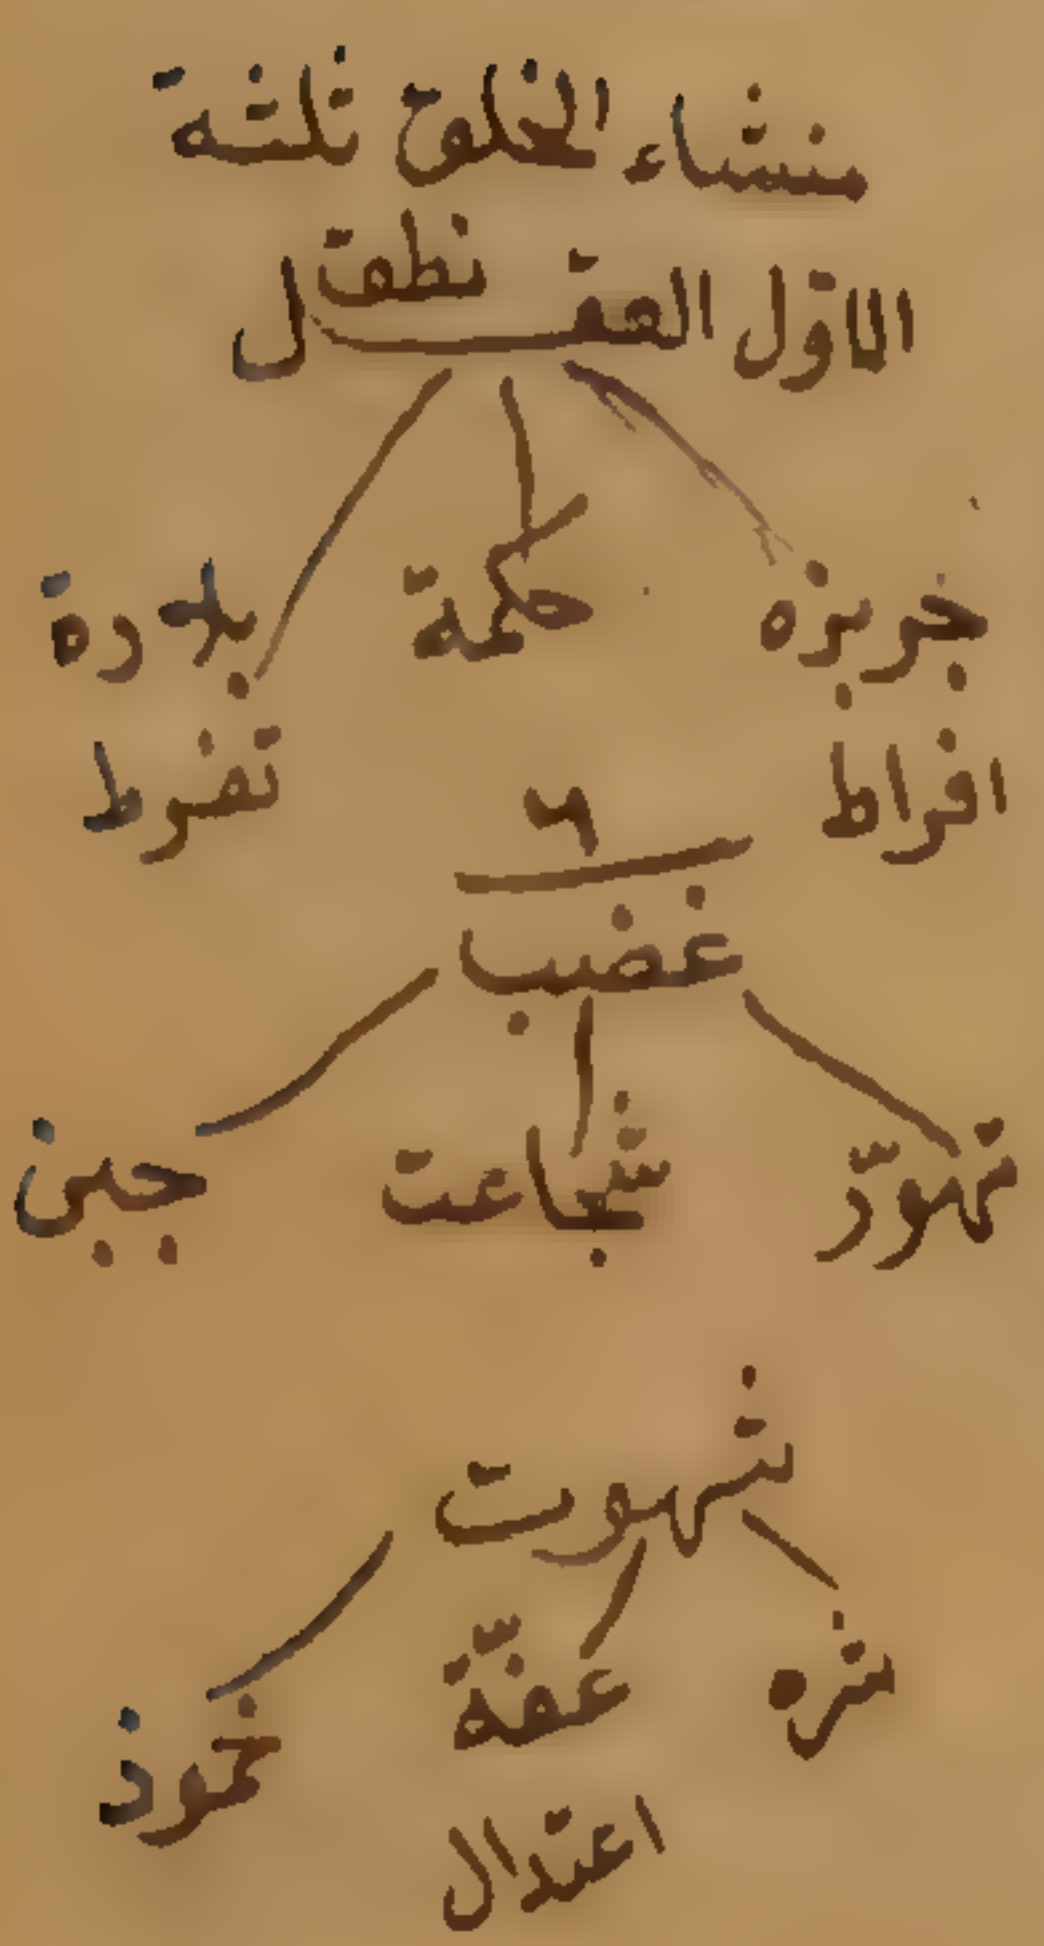 منشاء الخلوق ثلثة
الاوّل العقل نطق
جربزه حكمة بلادة
افراط تفرط
٢
غضب
تهوّر شجاعت جبين
شهوت
شره عفّة خموذ
اعتدال